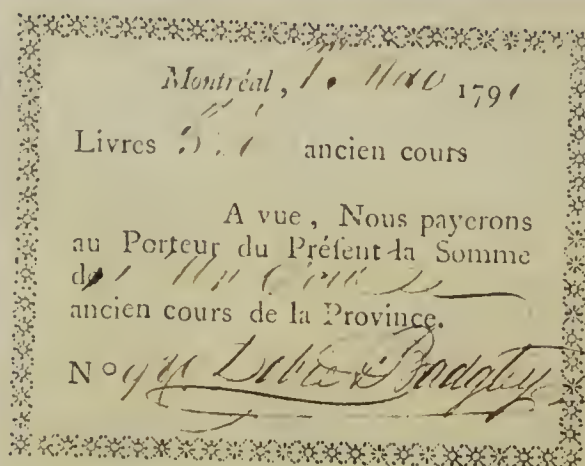 Montréal, 1. 1791
Livres ancien cours
A vue, Nous payerons
au Porteur du Préſent la Somme
de
ancien cours de la Province.
Nº Badgley